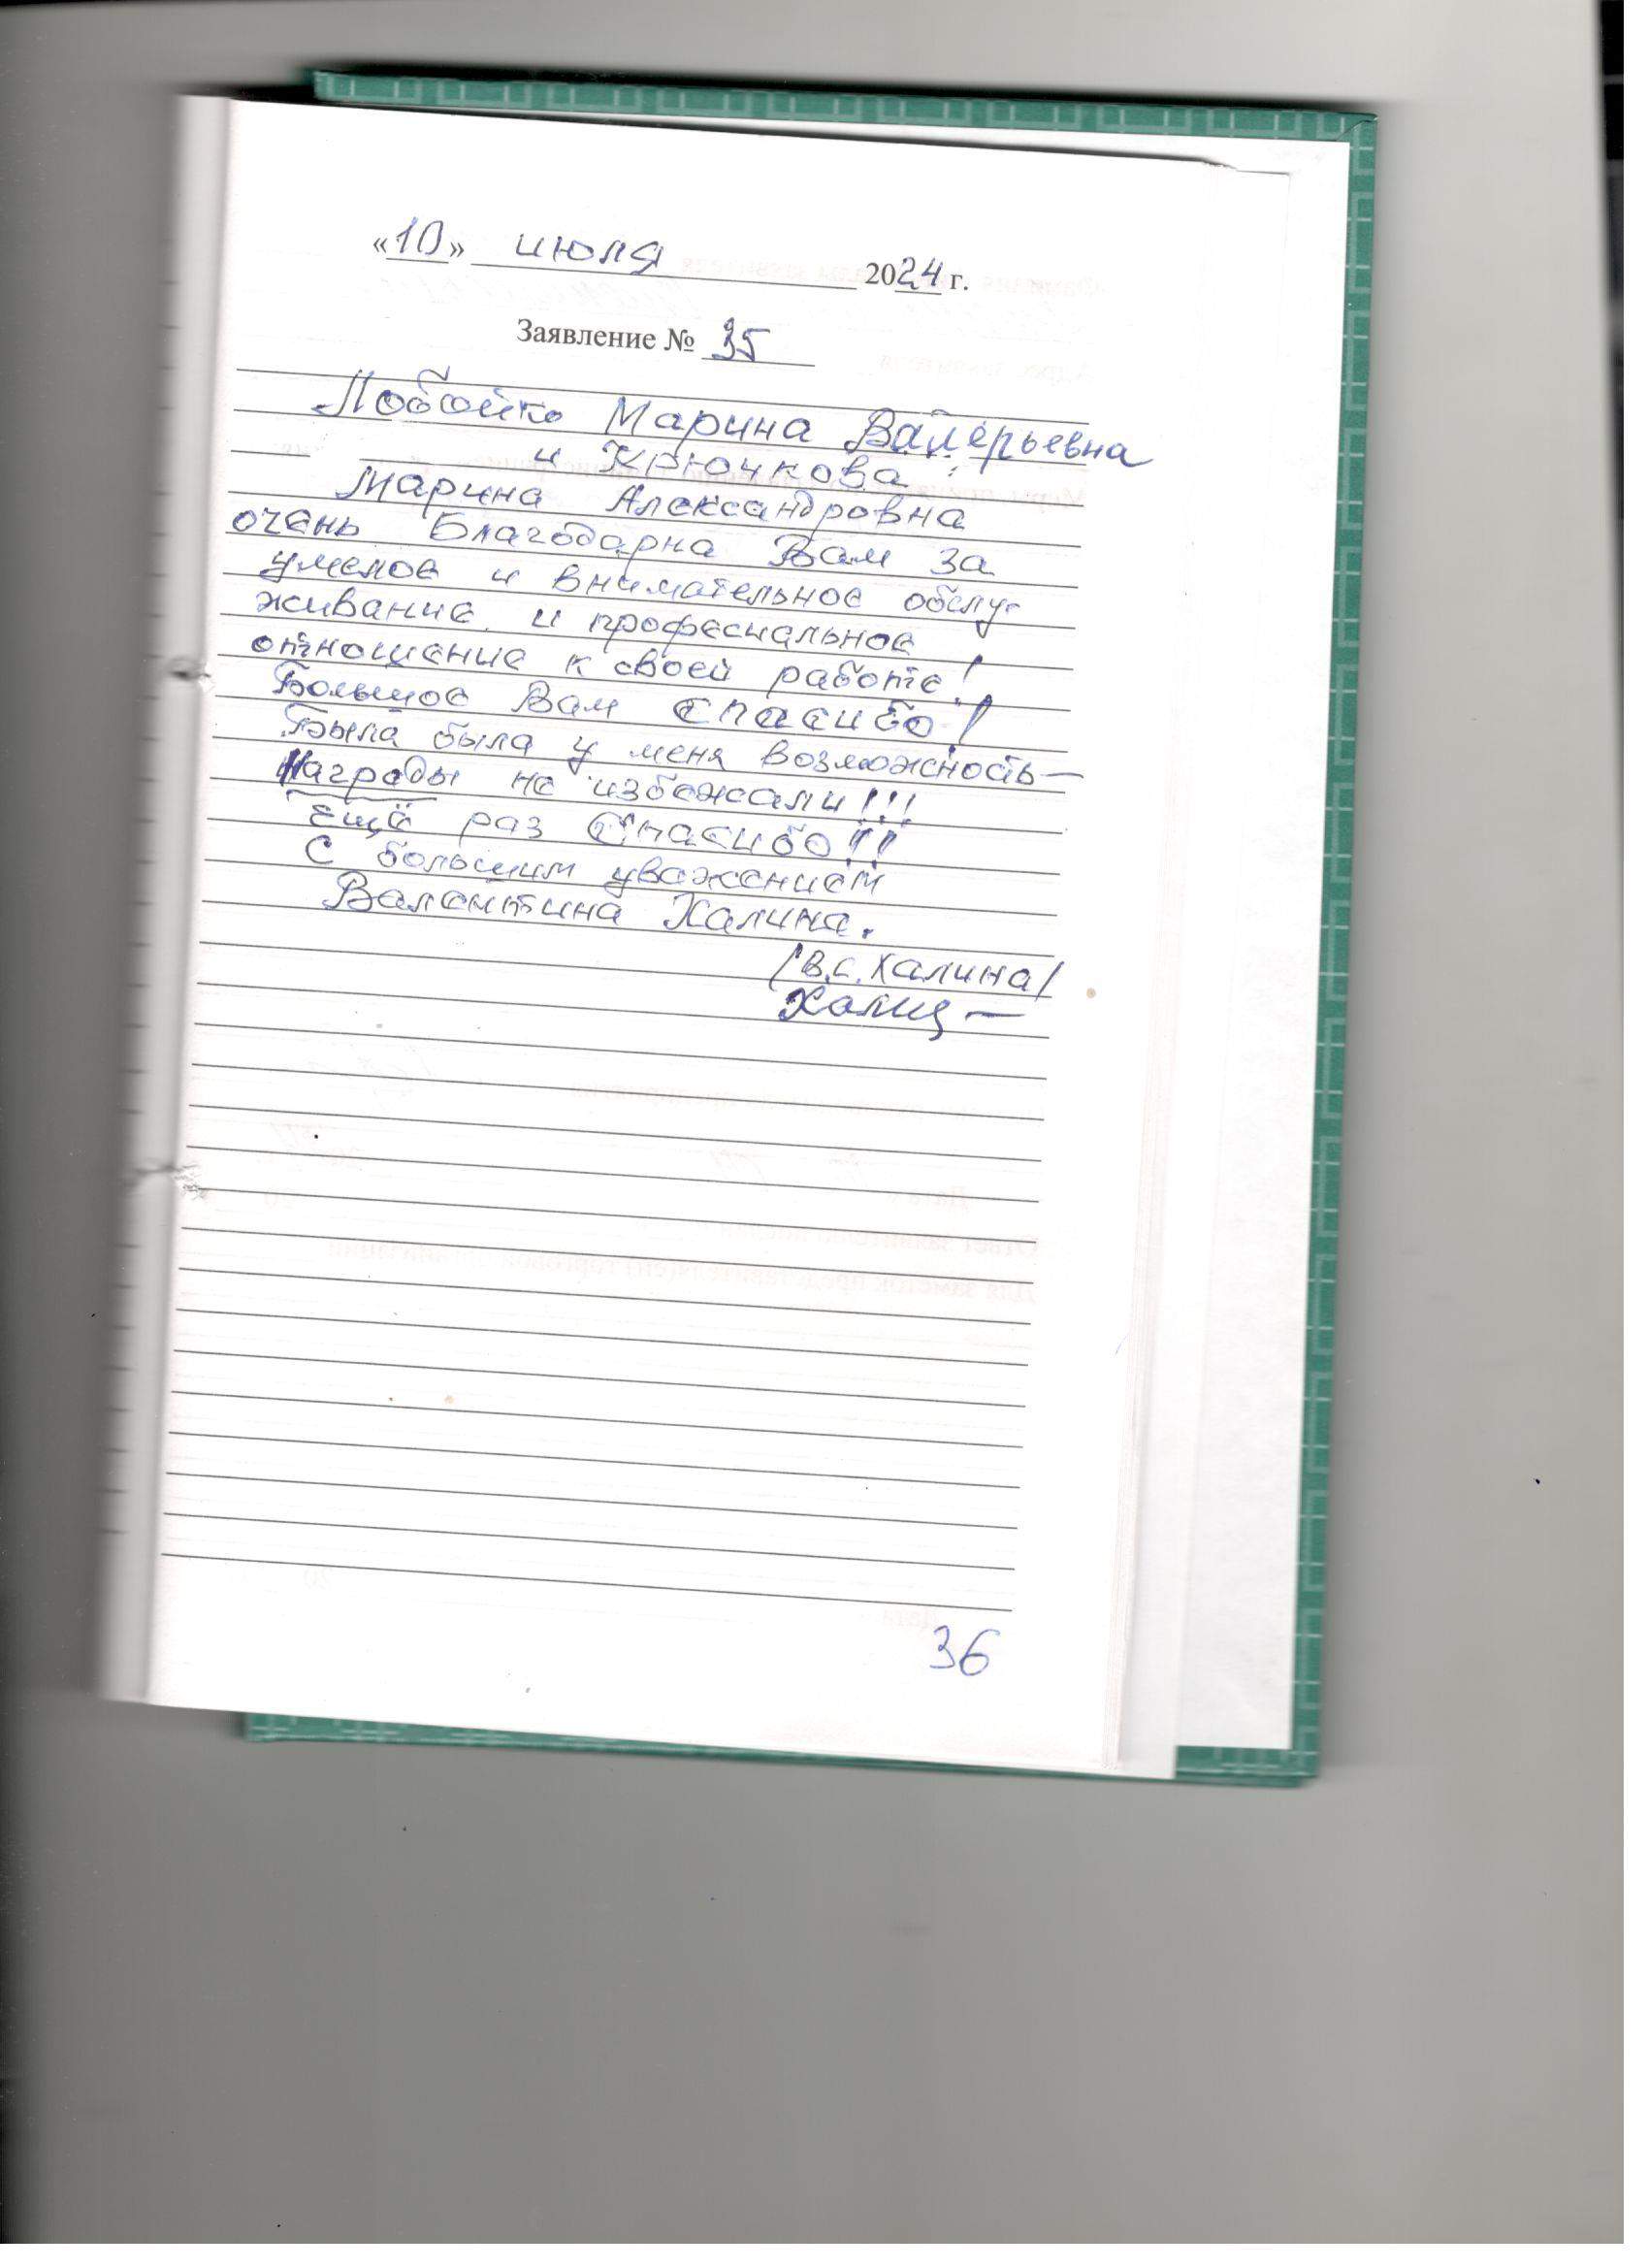 «10» июля 2024 г.
Заявление № 35
Лобойко Марина Валерьевна
и Крючкова
Марина Александровна
очень Благодарна Вам за
умелое и внимательное обслу-
живание и професиальное
отношение к своей работе!
Большое Вам Спасибо!
Была была у меня возможность—
Награды не избежали!!!
Ещё раз Спасибо!!
С большим уважением
Валентина Халина.
/В.С. Халина/
36